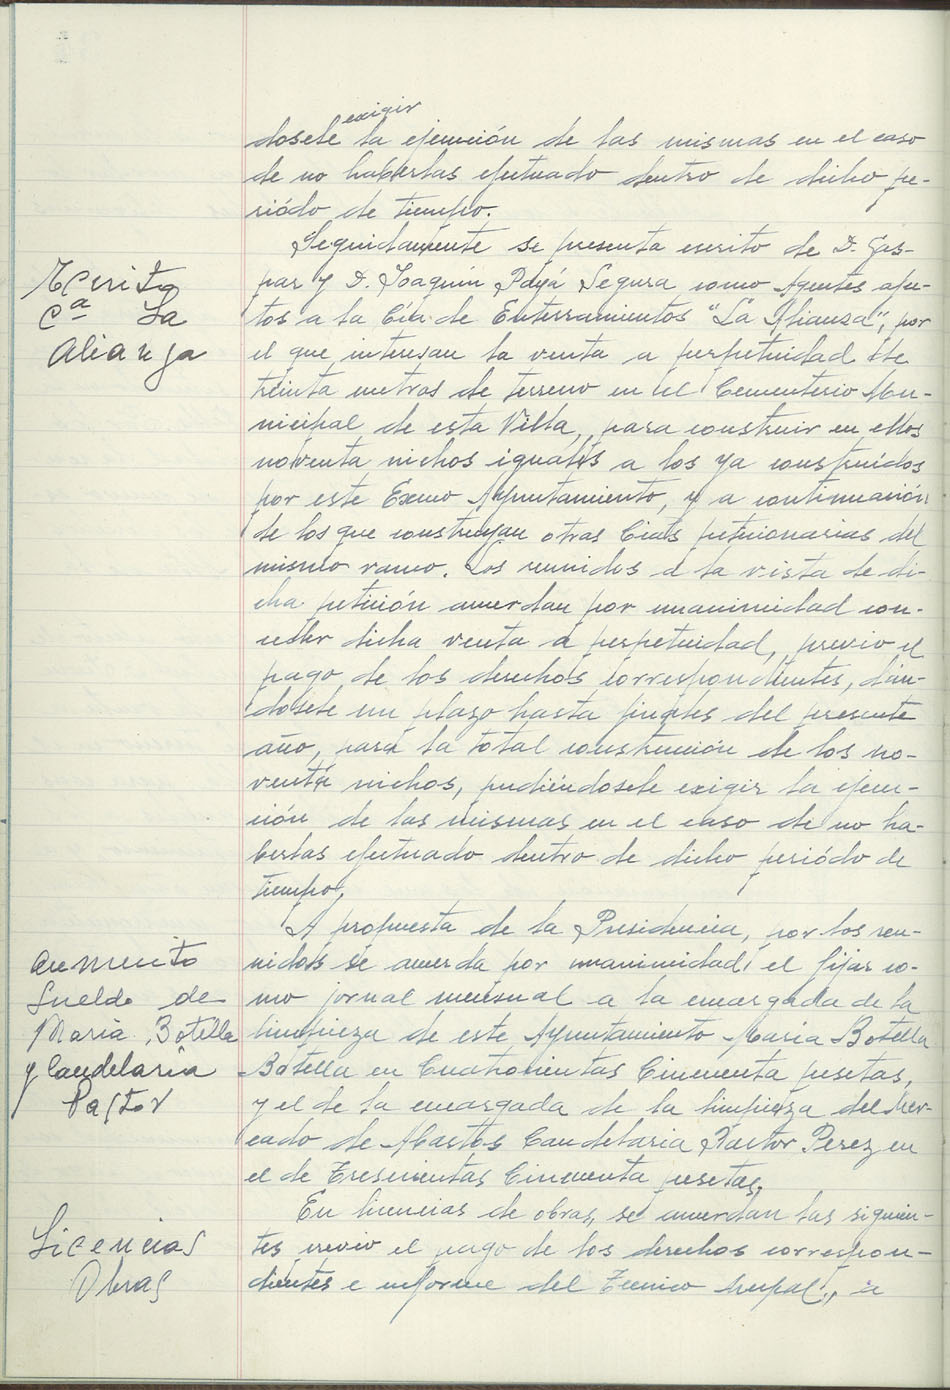 exigir
dosele la ejecución de las mismas en el caso
de no haberlas efectuado dentro de dicho pe-
riódo de tiempo.
Seguidamente se presenta escrito de D. Gas-
Escrito
par y D. Joaquín Payá Segura como Agentes afec-
Cª La
tos a la Cía. de Enterramientos "La Alianza", por
Alianza
el que interesan la venta a perpetuidad de
treinta metros de terreno en el Cementerio Mu-
nicipal de esta Villa, para construir en ellos
noventa nichos iguales a los ya construidos
por este Excmo Ayuntamiento, y a continuación
de los que construyan otras Cias peticionarias del
mismo ramo. Los reunidos a la vista de di-
cha petición acuerdan por unanimidad con-
ceder dicha venta a perpetuidad, previo el
pago de los derechos correspondientes, dán-
dosele un plazo hasta finales del presente
año, para la total construcción de los no-
venta nichos, pudiéndosele exigir la ejecu-
ción de las mismas en el caso de no ha-
berlas efectuado dentro de dicho periódo de
tiempo,
A propuesta de la Presidencia, por los reu-
Aumento
nidos se acuerda por unanimidad el fijar co-
Sueldo de
mo jornal mensual a la encargada de la
Maria Botella
limpieza de este Ayuntamiento Maria Botella
y Candelaria
Botella en Cuatrocientas Cincuenta pesetas,
Pastor
y el de la encargada de la limpieza del Mer-
cado de Abastos Candelaria Pastor Perez en
el de Trescientas Cincuenta pesetas,
En licencias de obras, se acuerdan las siguien-
Licencias
tes previo el pago de los derechos correspon-
Obras
dientes e informe del Tecnico Mupal., a